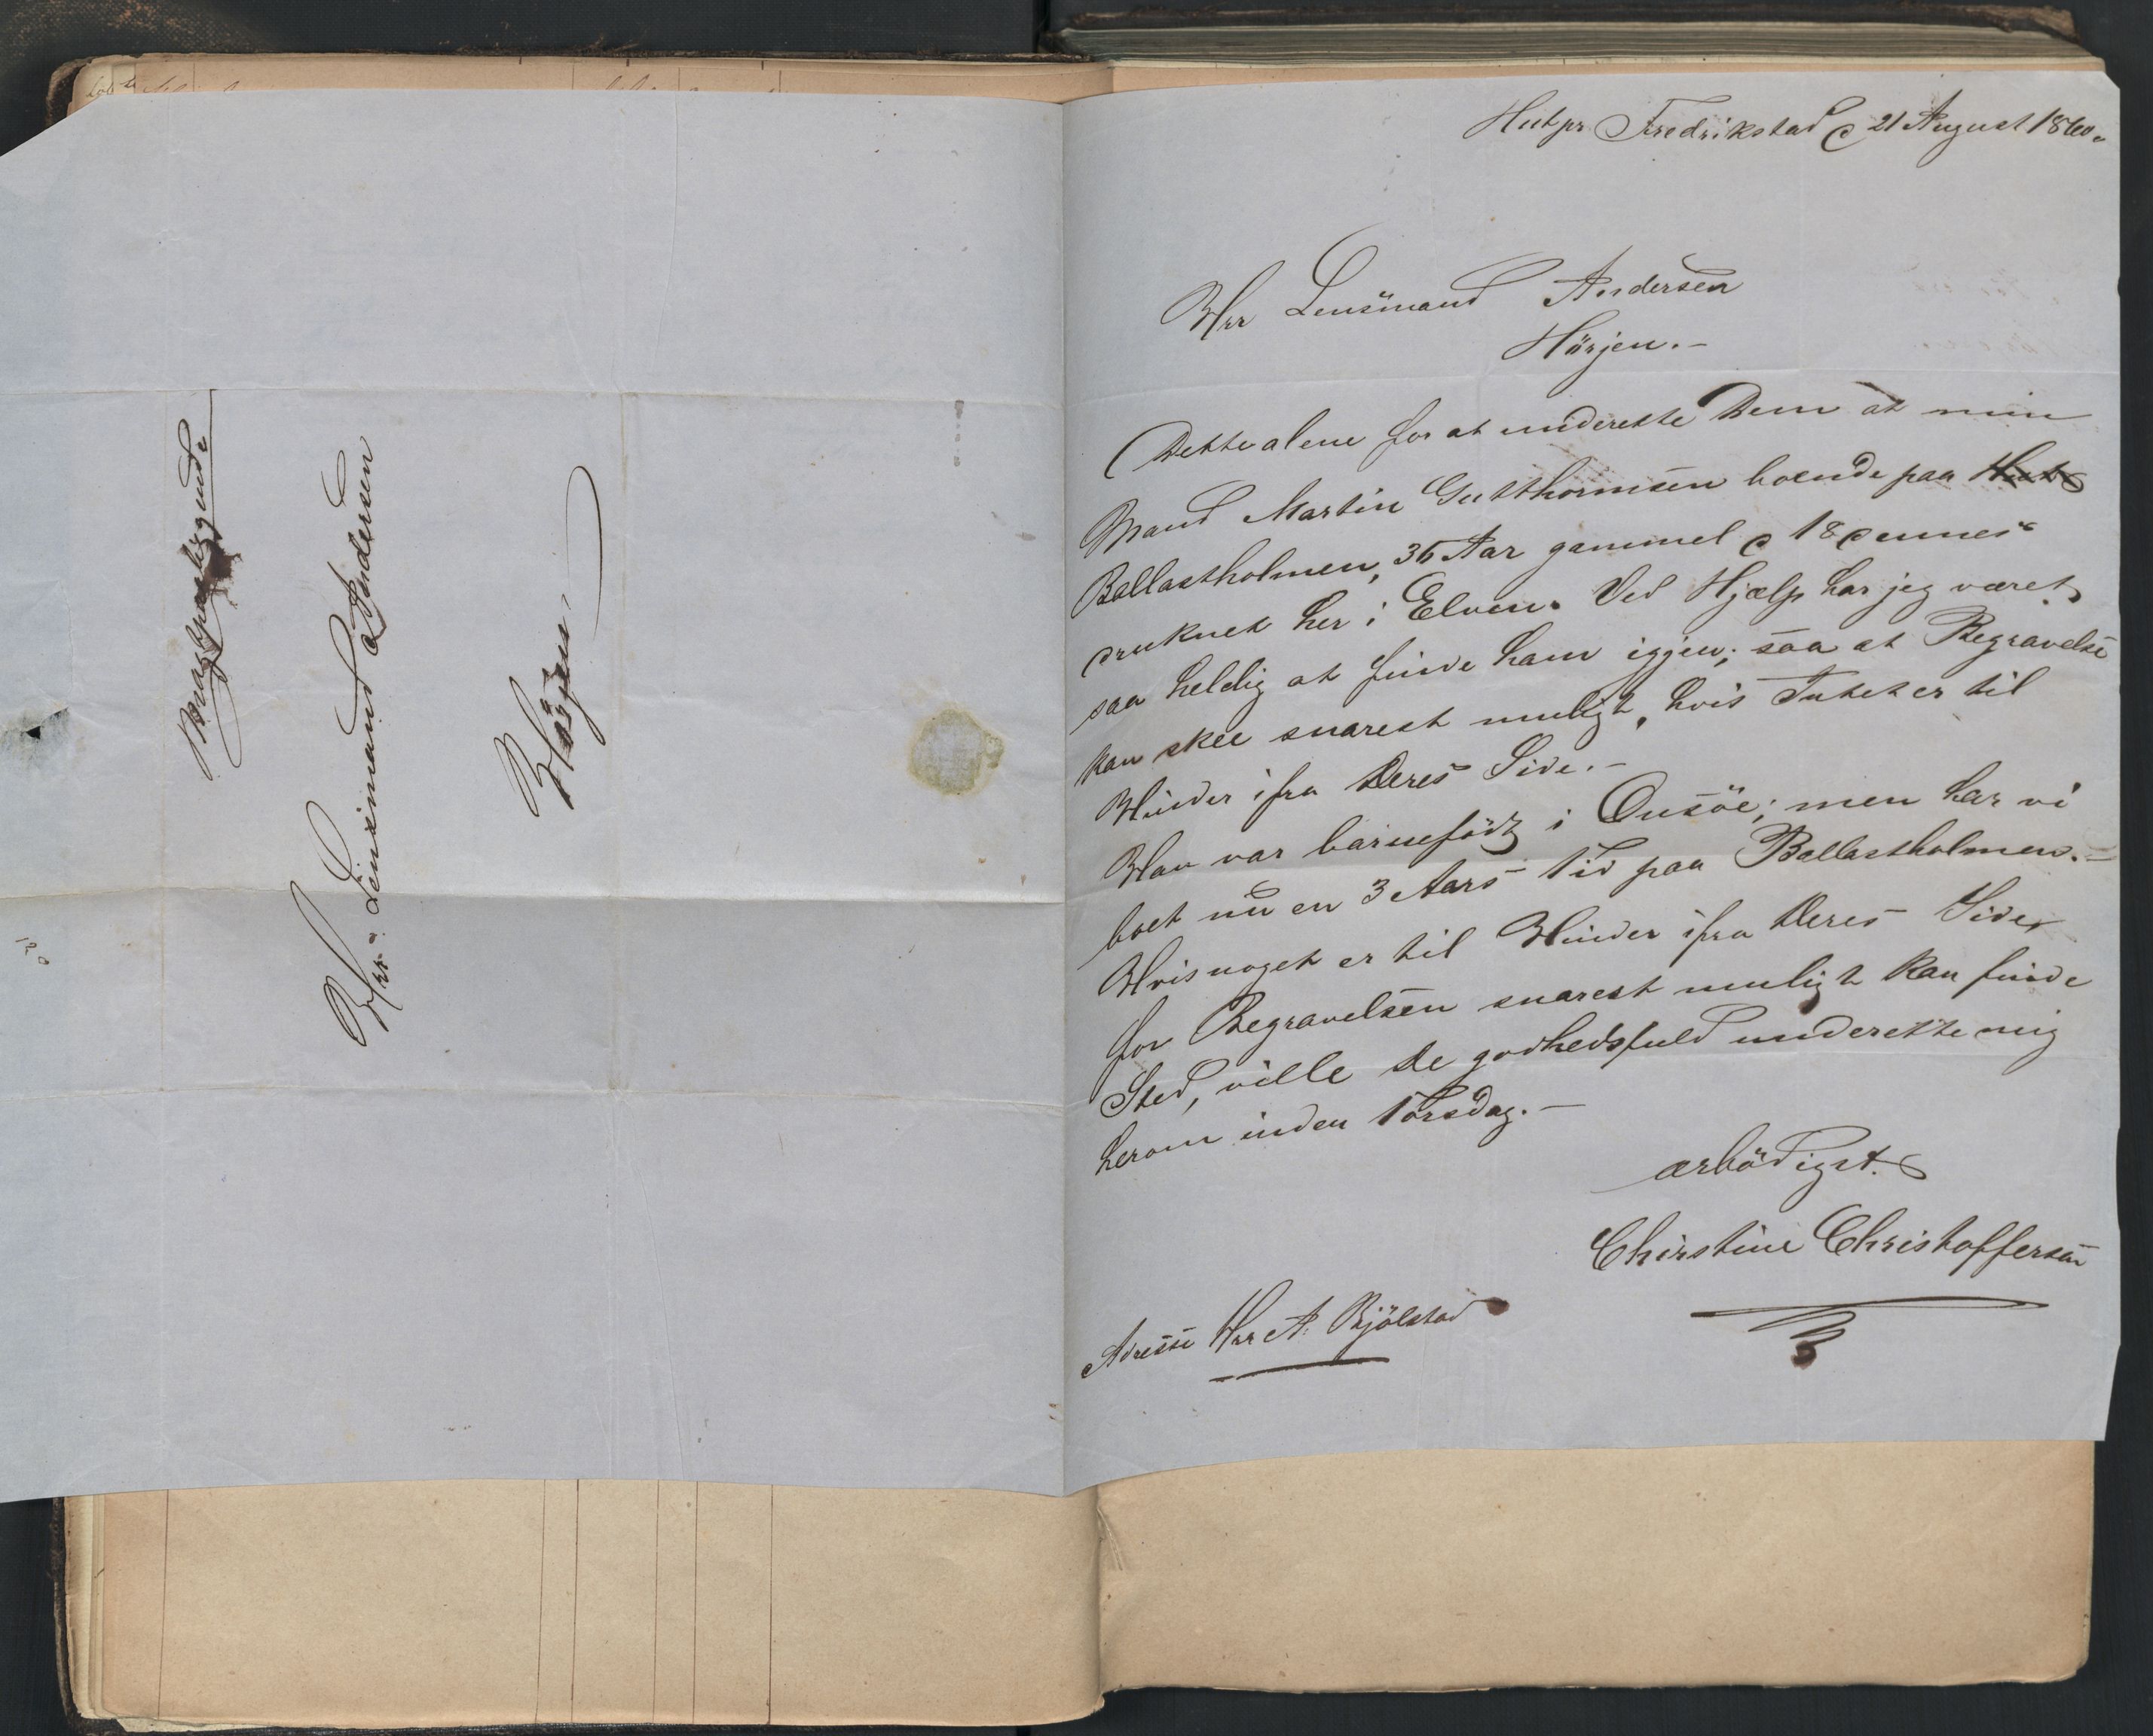 Magtpaaliggende
Hrr. Lensmand Andersen
Hörjen.
Hut pr Fredrikstad d 21 August 1860.
Hrr Lensmand Andersen
Hörjen.-
Dette alene for at underette Dem at min
Mand Martin Gutthormsen boende paa Hut
Ballastholmen, 36 Aar gammel d 18 dennes
druknet her i Elven. Ved Hjælp har jeg været
saa heldig at finde ham igjen; saa at Begravelse
kan skee snarest muligt, hvis Intet er til
Hinder ifra Deres Side.-
Han var barnefödt i Onsöe; men har vi
boet nu en 3 Aars Tid paa Ballastholmen.-
Hvis noget er til Hinder ifra Deres Side,
for Begravelsen snarest muligt kan finde
Sted, ville De godhedsfuld underette mig
herom inden Torsdag.-
ærbödigst.
Chirstine Christoffersen
Adresse Hrr A. Bjölstad